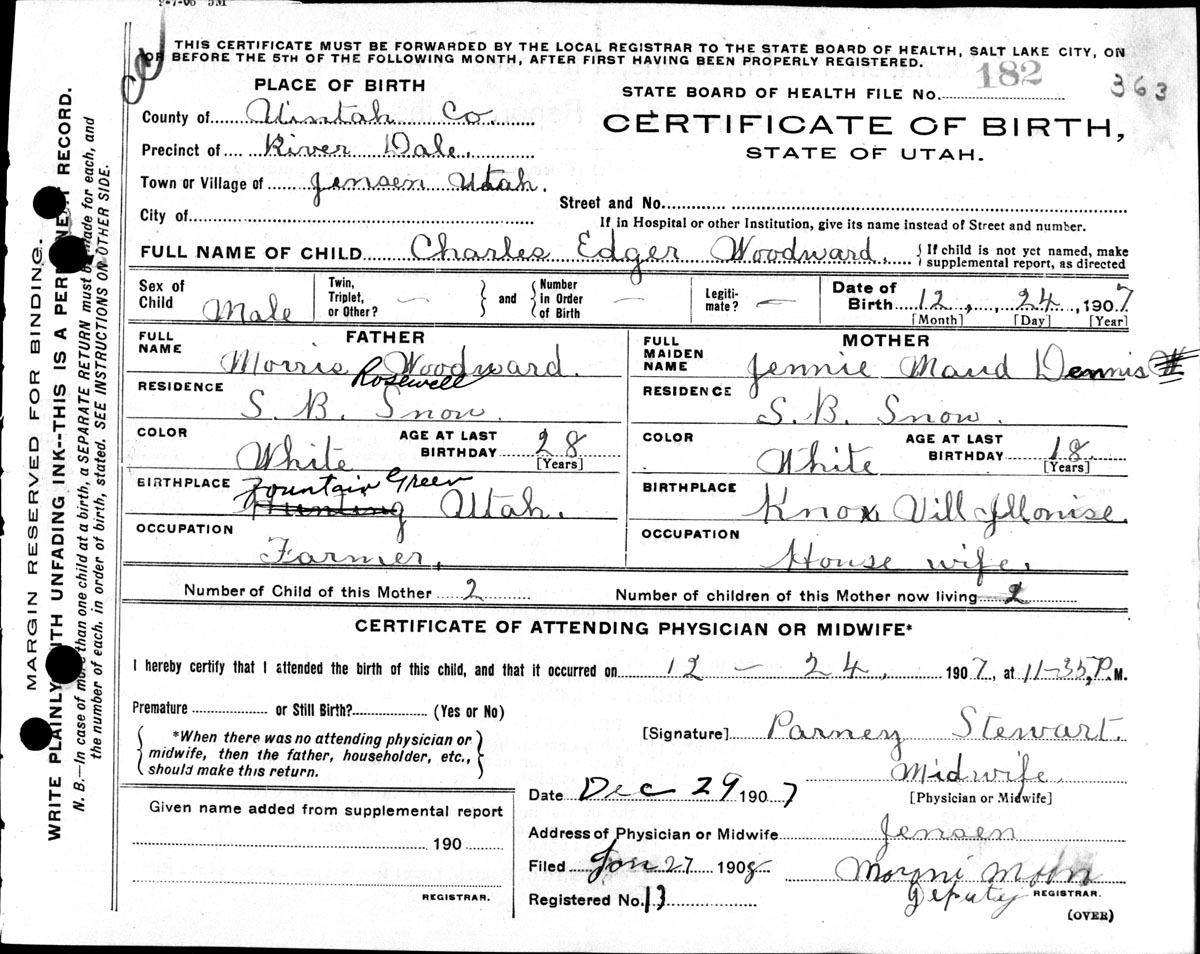 2-7-06 5M
THIS CERTIFICATE MUST BE FORWARDED BY THE LOCAL REGISTRAR TO THE STATE BOARD OF HEALTH, SALT LAKE CITY, ON
OR BEFORE THE 5TH OF THE FOLLOWING MONTH, AFTER FIRST HAVING BEEN PROPERLY REGISTERED.
PLACE OF BIRTH
STATE BOARD OF HEALTH FILE No. 182 363
County of Uintah Co.
CERTIFICATE OF BIRTH,
STATE OF UTAH.
Precinct of River Dale.
Town or Village of Jensen Utah.
Street and No.
City of
If in Hospital or other Institution, give its name instead of Street and number.
FULL NAME OF CHILD Charles Edger Woodward. { If child is not yet named, make
supplemental report, as directed
Sex of Child Male
Twin, Triplet, or Other? — } and { Number in Order of Birth —
Legiti-mate? —
Date of Birth 12, 24, 1907
[Month] [Day] [Year]
FATHER
FULL NAME Morris Woodward.
Rosewell
RESIDENCE
S. B. Snow.
COLOR White
AGE AT LAST BIRTHDAY 28
[Years]
BIRTHPLACE Fountain Green
Utah.
OCCUPATION
Farmer,
MOTHER
FULL MAIDEN NAME Jennie Maud Dennis
RESIDENCE
S. B. Snow.
COLOR White
AGE AT LAST BIRTHDAY 18.
[Years]
BIRTHPLACE
Knox Vill Illonise.
OCCUPATION
House wife.
Number of Child of this Mother 2 Number of children of this Mother now living 2
CERTIFICATE OF ATTENDING PHYSICIAN OR MIDWIFE*
I hereby certify that I attended the birth of this child, and that it occurred on 12 – 24, 1907, at 11-35, P.M.
Premature or Still Birth? (Yes or No)
{ *When there was no attending physician or
midwife, then the father, householder, etc.,
should make this return. }
[Signature] Parney Stewart.
Midwife.
[Physician or Midwife]
Date Dec 29 1907
Given name added from supplemental report
190
REGISTRAR.
Address of Physician or Midwife Jensen
Filed Jan 27 1908 Moroni Moon
Deputy REGISTRAR.
Registered No. 13
(OVER)
MARGIN RESERVED FOR BINDING.
WRITE PLAINLY WITH UNFADING INK--THIS IS A PERMANENT RECORD.
N. B.—In case of more than one child at a birth, a SEPARATE RETURN must be made for each, and
the number of each, in order of birth, stated. SEE INSTRUCTIONS ON OTHER SIDE.